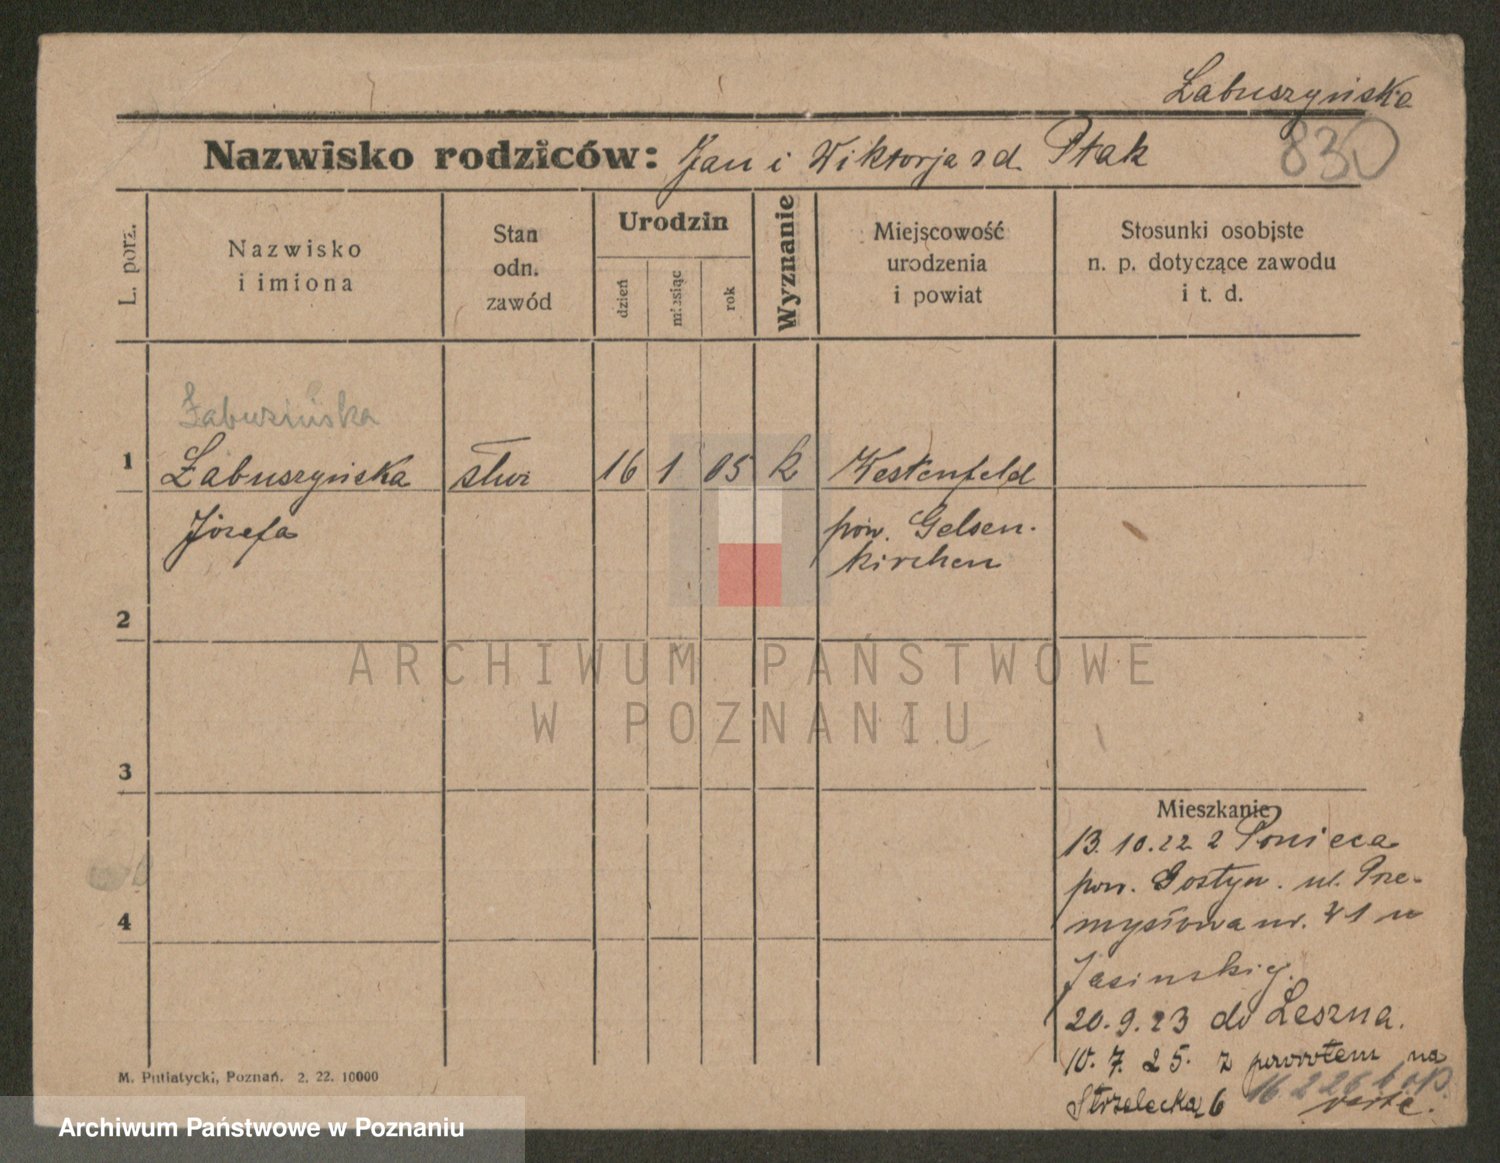 Łabuszyńska
830
Nazwisko rodziców: Jan i Wiktorja zd. Ptak
L. porz.
Nazwisko
i imiona
Stan
odn.
zawód
Urodzin
dzień
miesiąc
rok
Wyznanie
Miejscowość
urodzenia
i powiat
Stosunki osobiste
n. p. dotyczące zawodu
i t. d.
Łabuzińska
1 Łabuszyńska służ 16 1 05 k Westenfeld
Józefa pow. Gelsen-
kirchen
2
ARCHIWUM PAŃSTWOWE
W POZNANIU
3
Mieszkanie
13.10.22 z Ponieca
pow. Gostyn. ul. Prze-
mysłowa nr. 21 u
Jasinskiej.
4
20.9.23 do Leszna.
10.7.25. z powrotem na
Strzelecką 6
16.2.26
verte.
M. Putiatycki, Poznań. 2. 22. 10000
Archiwum Państwowe w Poznaniu